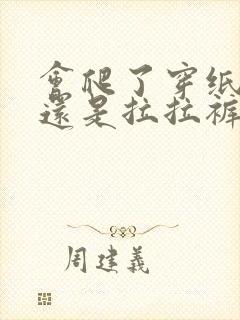 會爬了穿纸
還是拉拉裤
周建義